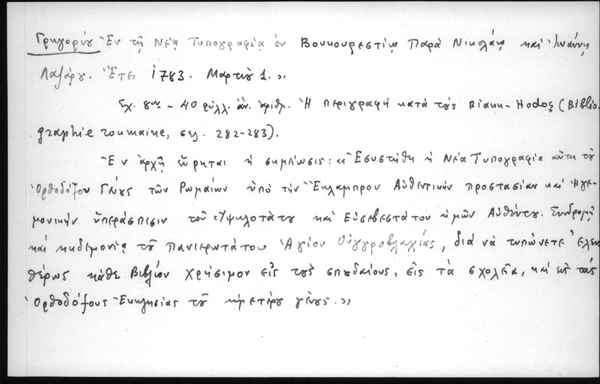 Γρηγορίου Ἐν τῇ Νέᾳ Τυπογραφίᾳ ἐν Βουκουρεστίῳ Παρὰ Νικολάῳ καὶ Ἰωάννῃ
Λαζάρου. Ἔτει 1783. Μαρτίου 1.»
Σχ. 8ον - 40 φύλλ. ἀν. ἀριθ. Ἡ περιγραφὴ κατὰ τοὺς Bianu-Hodoș (Biblio-
graphie roumaine, σελ. 282-283).
Ἐν ἀρχῇ εὕρηται ἡ σημείωσις: «Ἐσυστήθη ἡ Νέα Τυπογραφία αὕτη τοῦ
Ὀρθοδόξου Γένους τῶν Ρωμαίων ὑπὸ τὴν Ἐκλαμπρον Αὐθεντικὴν προστασίαν καὶ Ἡγε-
μονικὴν ὑπεράσπισιν τοῦ Ὑψηλοτάτου καὶ Εὐσεβεστάτου ἡμῶν Αὐθέντου. Συνδρομῇ
καὶ κηδεμονίᾳ τοῦ Πανιερωτάτου Ἁγίου Οὐγγροβλαχίας, διὰ νὰ τυπώνεται Ἐλευ-
θέρως κάθε Βιβλίον χρήσιμον εἰς τοὺς σπουδαίους, εἰς τὰ σχολεῖα, καὶ εἰς τὰς
Ὀρθοδόξους Ἐκκλησίας τοῦ ἡμετέρου γένους.»